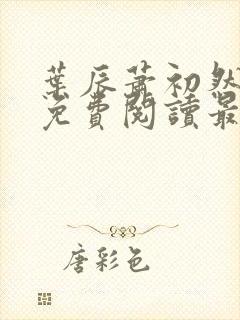 葉辰蕭初然
免費閱讀最
唐彩色